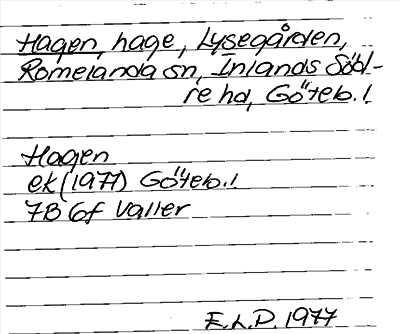 Hagen, hage, Lysegården,
Romelanda sn, Inlands Söd-
re hd, Göteb. l.
Hagen
ek (1977) Göteb. l
7B 6f Valler
E.L.D. 1977